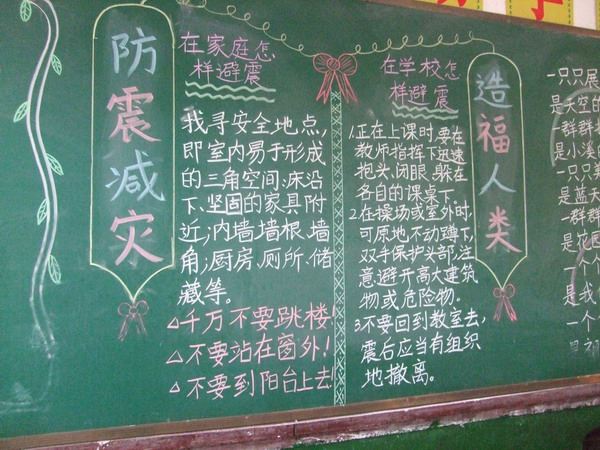 防震减灾
在家庭怎
样避震
找寻安全地点,
即室内易于形成
的三角空间:床沿
下、坚固的家具附
近;内墙墙根、墙
角;厨房、厕所、储
藏等。
△千万不要跳楼!
△不要站在窗外!
△不要到阳台上去!
在学校怎
样避震
1.正在上课时,要在
教师指挥下迅速
抱头、闭眼、躲在
各自的课桌下。
2.在操场或室外时,
可原地不动蹲下,
双手保护头部,注
意避开高大建筑
物或危险物。
3.不要回到教室去,
震后应当有组织
地撤离。
造福人类
一只只展
是天空的
一群群
是小溪
一只只
是蓝天
一群群
是花
一个个
是我
一个